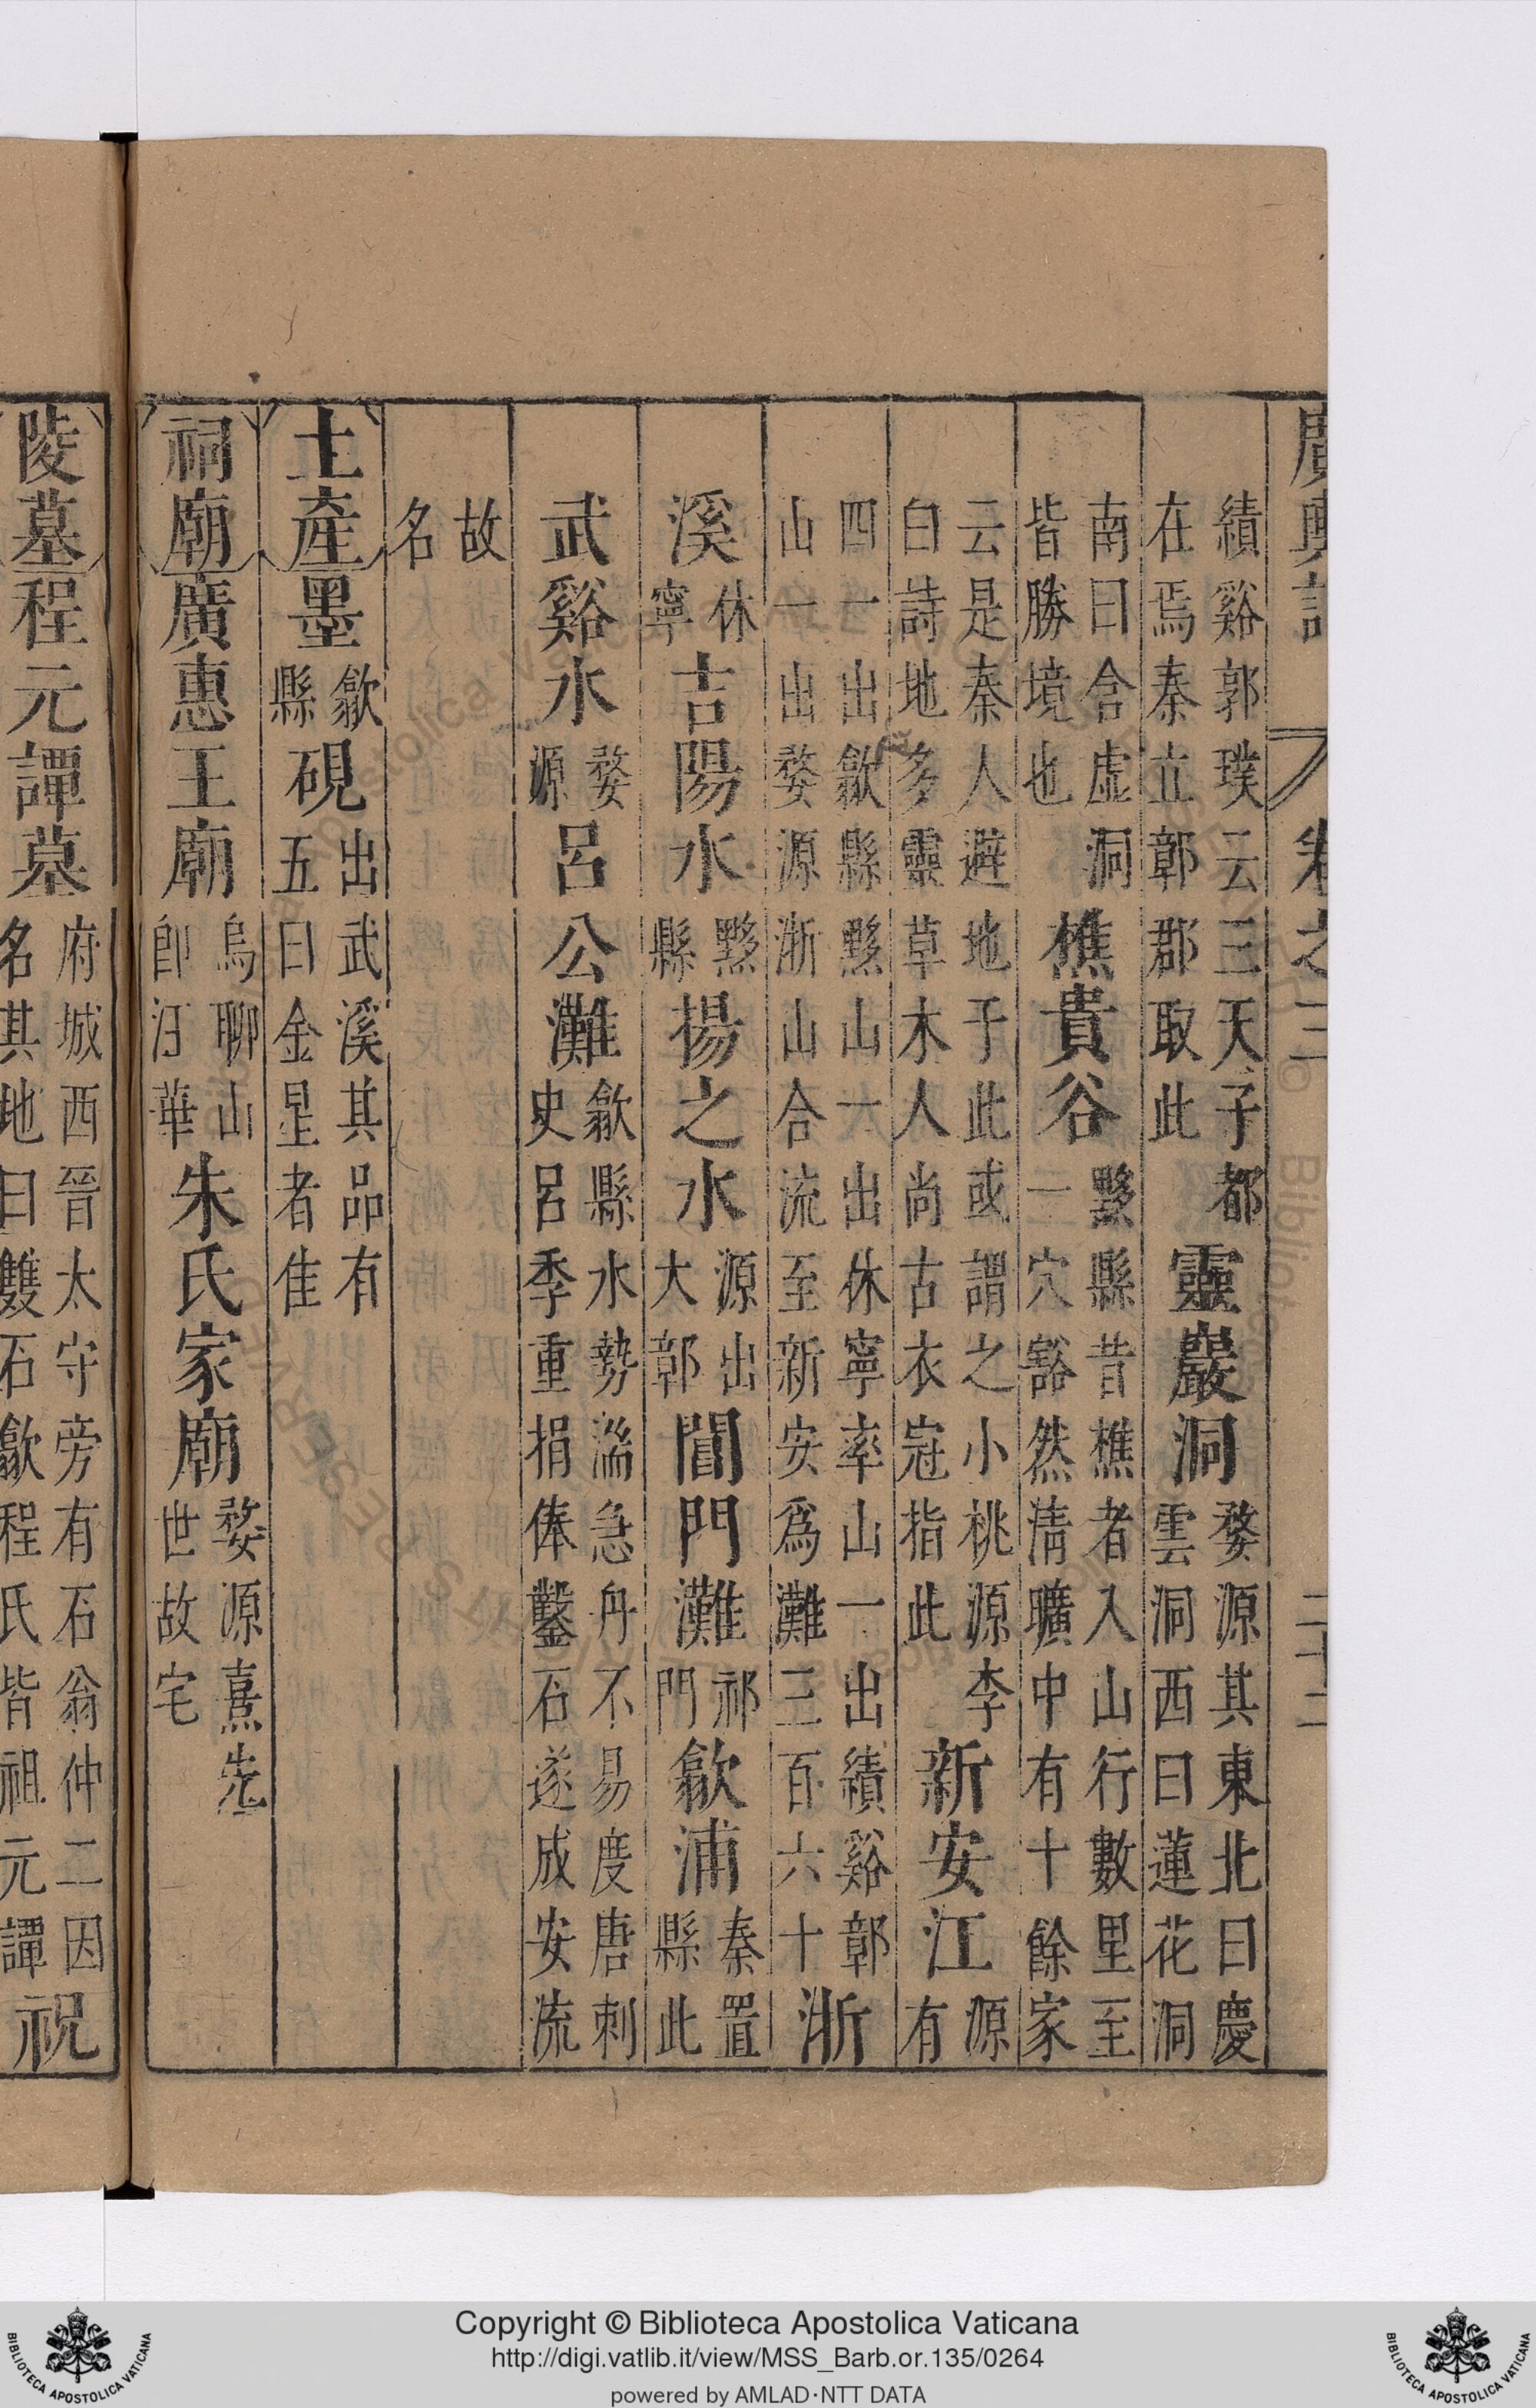 廣輿記 卷之三 二十二
績谿郭璞云三天子都在焉秦立鄣郡取此靈巖洞婺源其東北曰慶雲洞西曰蓮花洞
南曰含虛洞皆勝境也樵貴谷黟縣昔樵者入山行數里至一穴豁然清曠中有十餘家
云是秦人避地于此或謂之小桃源李白詩地多靈草木人尚古衣冠指此新安江源有
四一出歙縣黟山一出休寧率山一出績谿鄣山一出婺源浙山合流至新安爲灘三百六十浙
溪休寧吉陽水黟縣揚之水源出大鄣閶門灘祁門歙浦秦置縣此
武谿水婺源呂公灘歙縣水勢湍急舟不易度唐刺史呂季重捐俸鑿石遂成安流
故名
土產墨歙縣硯出武溪其品有五曰金星者佳
祠廟廣惠王廟烏聊山卽汪華朱氏家廟婺源熹先世故宅
陵墓程元譚墓府城西晉太守旁有石翁仲二因名其地曰雙石歙程氏皆祖元譚祝
Copyright © Biblioteca Apostolica Vaticana
http://digi.vatlib.it/view/MSS_Barb.or.135/0264
powered by AMLAD·NTT DATA
BIBLIOTECA APOSTOLICA VATICANA
BIBLIOTECA APOSTOLICA VATICANA